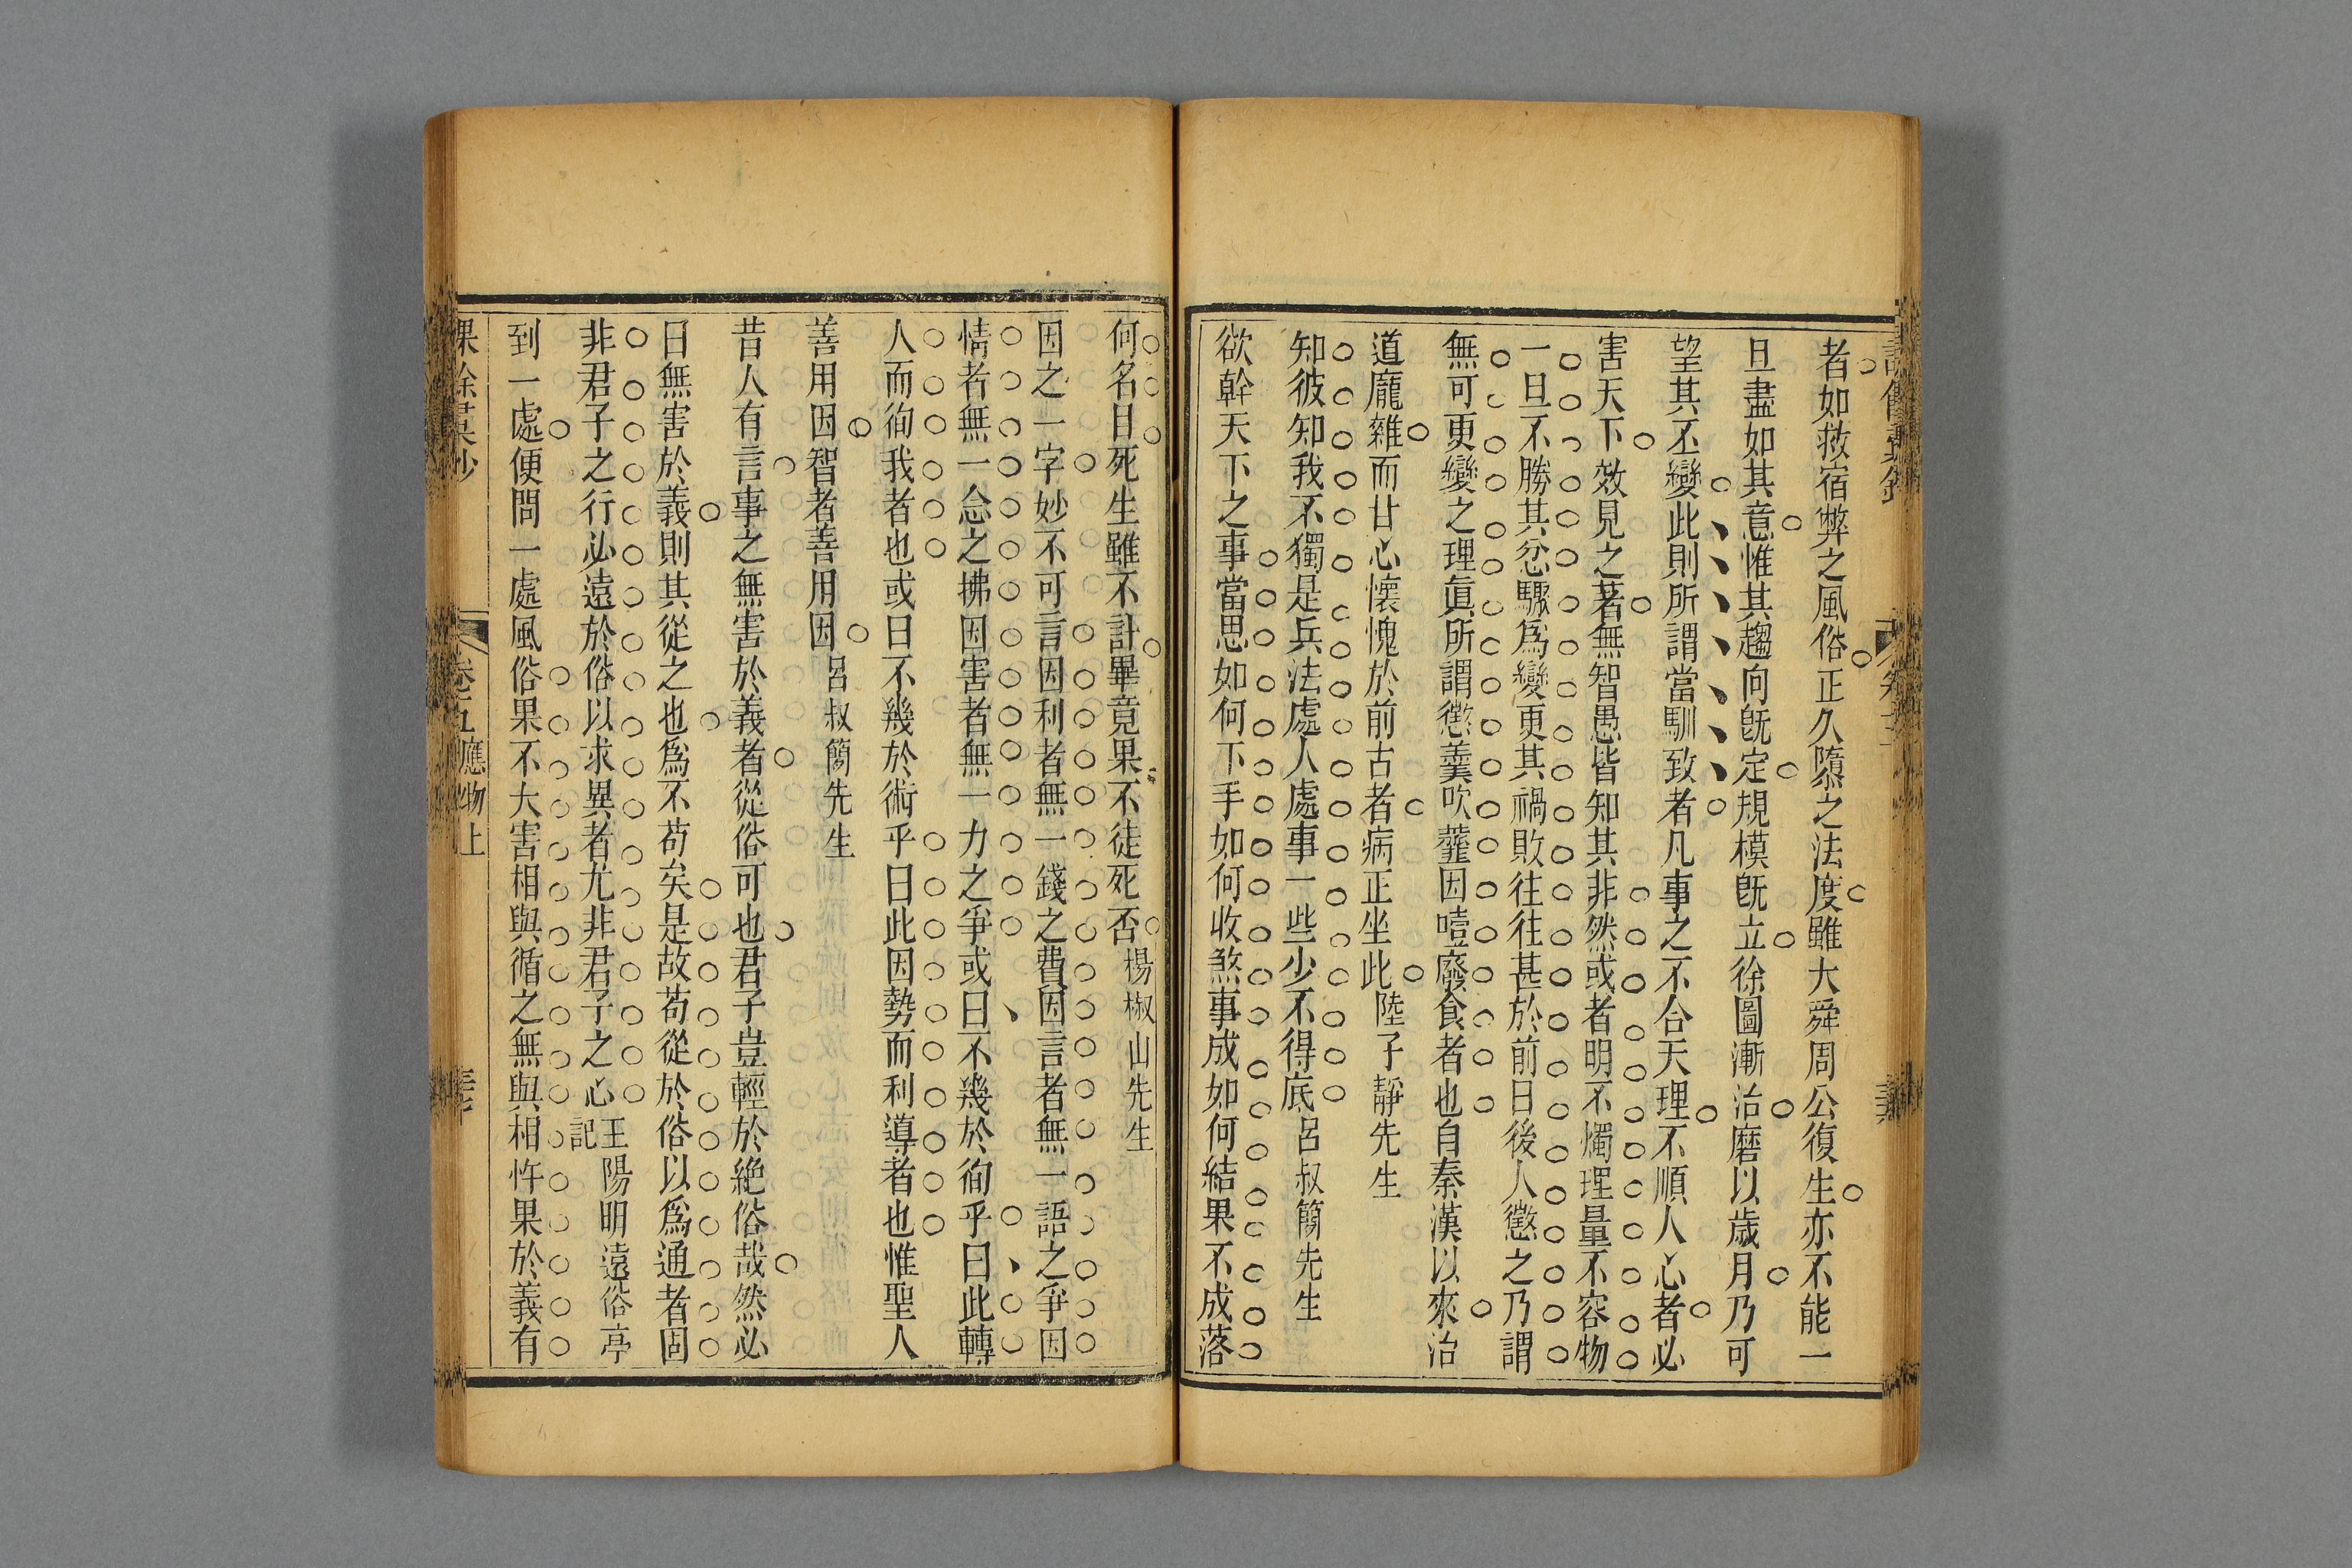 者如救宿弊之風俗正久隳之法度雖大舜周公復生亦不能一
旦盡如其意惟其趨向旣定規模旣立徐圖漸治磨以歲月乃可
望其丕變此則所謂當馴致者凡事之不合天理不順人心者必
害天下效見之著無智愚皆知其非然或者明不燭理量不容物
一旦不勝其忿驟爲變更其禍敗往往甚於前日後人懲之乃謂
無可更變之理眞所謂懲羹吹虀因噎廢食者也自秦漢以來治
道龐雜而甘心懷愧於前古者病正坐此陸子靜先生
知彼知我不獨是兵法處人處事一些少不得底呂叔簡先生
欲幹天下之事當思如何下手如何收煞事成如何結果不成落
何名曰死生雖不計畢竟果不徒死否楊椒山先生
因之一字妙不可言因利者無一錢之費因言者無一語之爭因
情者無一念之拂因害者無一力之爭或曰不幾於徇乎曰此轉
人而徇我者也或曰不幾於術乎曰此因勢而利導者也惟聖人
善用因智者善用因呂叔簡先生
昔人有言事之無害於義者從俗可也君子豈輕於絶俗哉然必
曰無害於義則其從之也爲不苟矣是故苟從於俗以爲通者固
非君子之行必遠於俗以求異者尤非君子之心王陽明遠俗亭記
到一處便問一處風俗果不大害相與循之無與相忤果於義有
卷五應物上